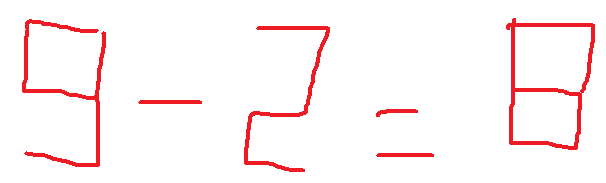 9 - 2 = 8